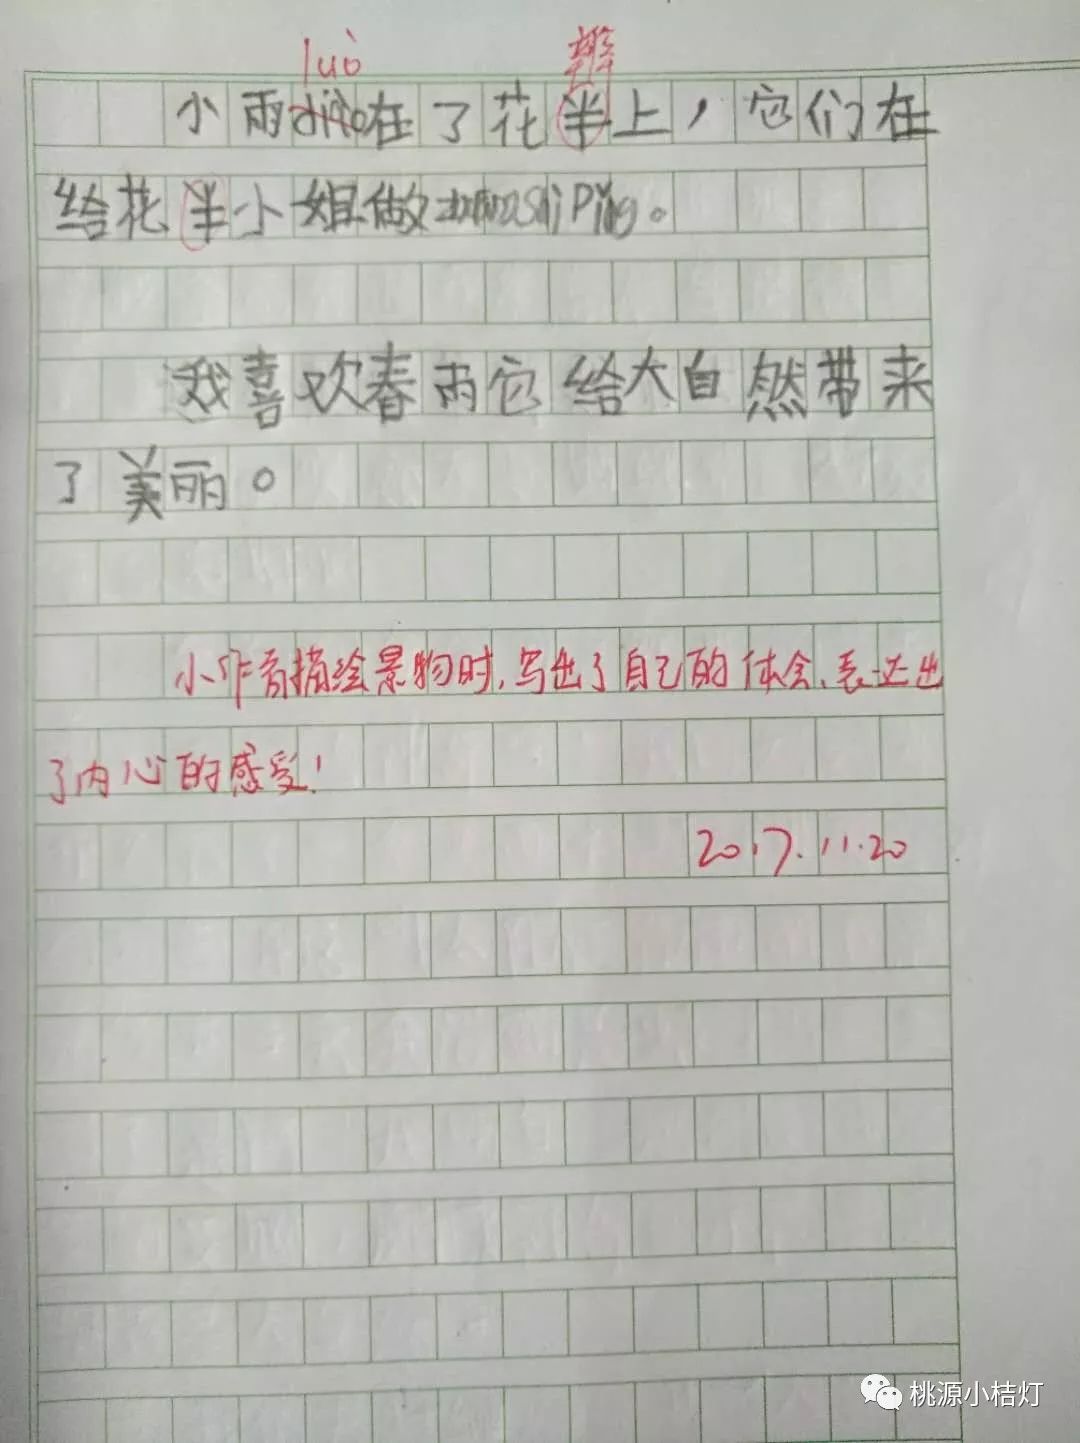 luò 瓣
小雨diào在了花半上，它们在
给花半小姐做zhuangshiping。
我喜欢春雨它给大自然带来
了美丽。
小作者描绘景物时,写出了自己的体会、表达出
了内心的感受!
2017.11.20
桃源小桔灯